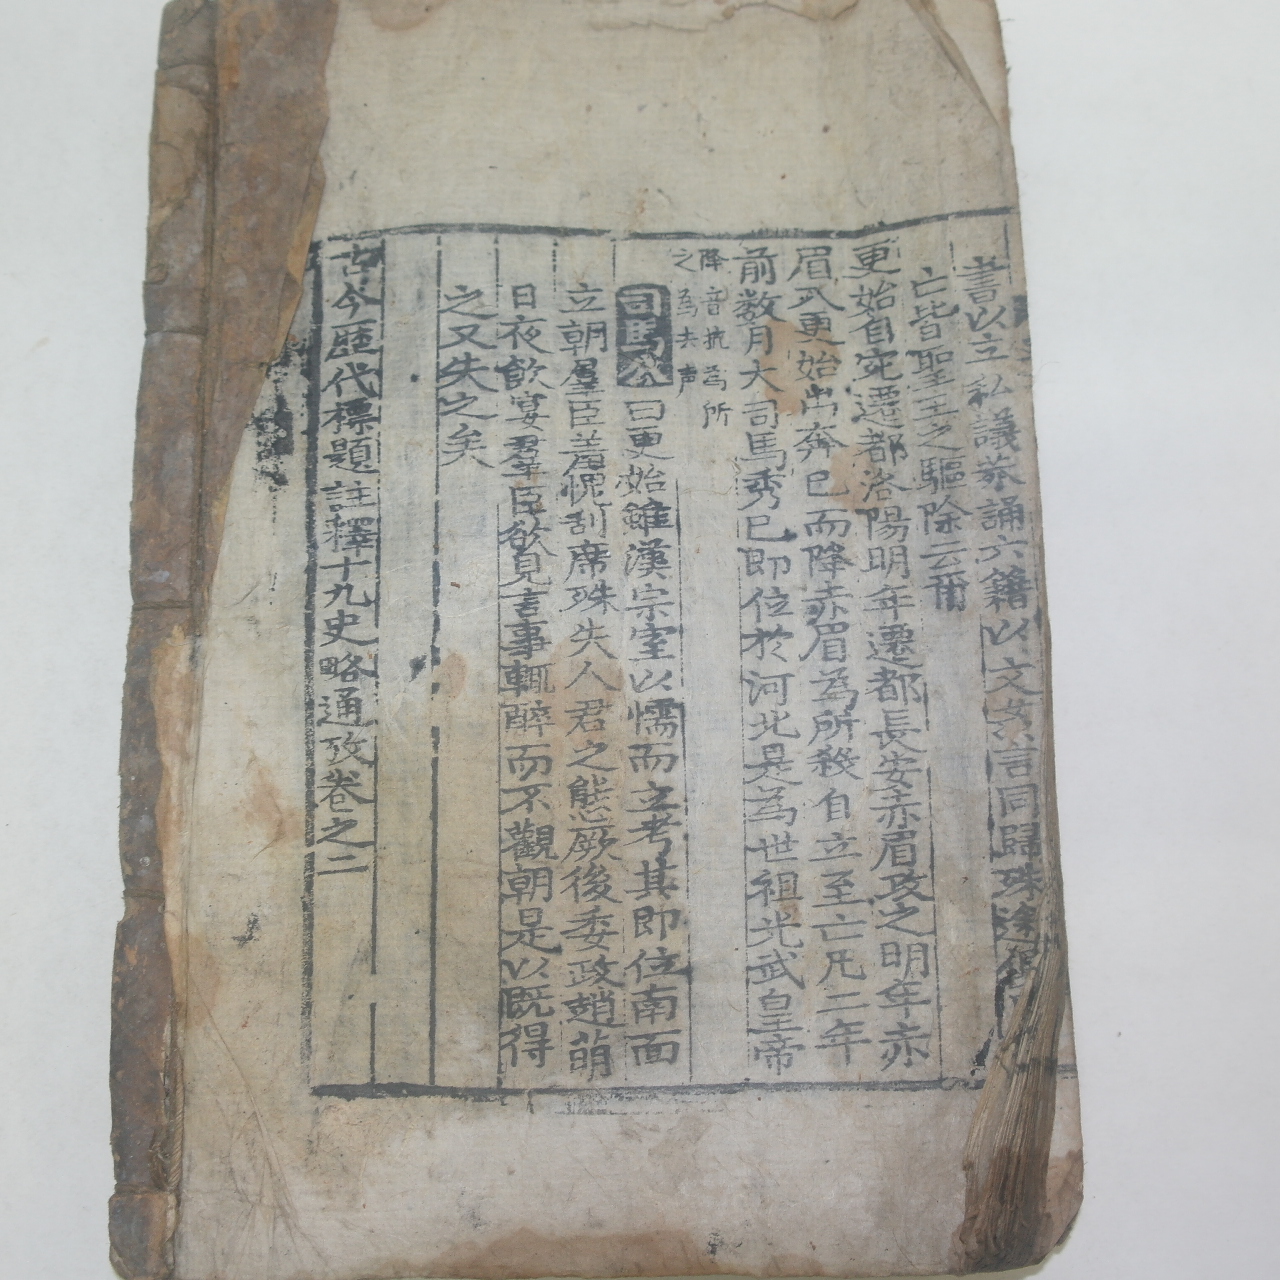 書以立私議莽誦六籍以文奸言同歸殊途俱用
亡皆聖王之驅除云爾
更始自宛遷都洛陽明年遷都長安赤眉攻之明年赤
眉入更始出奔已而降赤眉為所殺自立至亡凡二年
前数月大司馬秀已即位於河北是為世祖光武皇帝
降音抗為所
之為去声
司馬公曰更始雖漢宗室以懦而立考其即位南面
立朝羣臣羞愧刮席殊失人君之態厥後委政趙萌
日夜飲宴羣臣欲見言事輒醉而不觀朝是以既得
之又失之矣
古今歷代標題註釋十九史略通攷卷之二